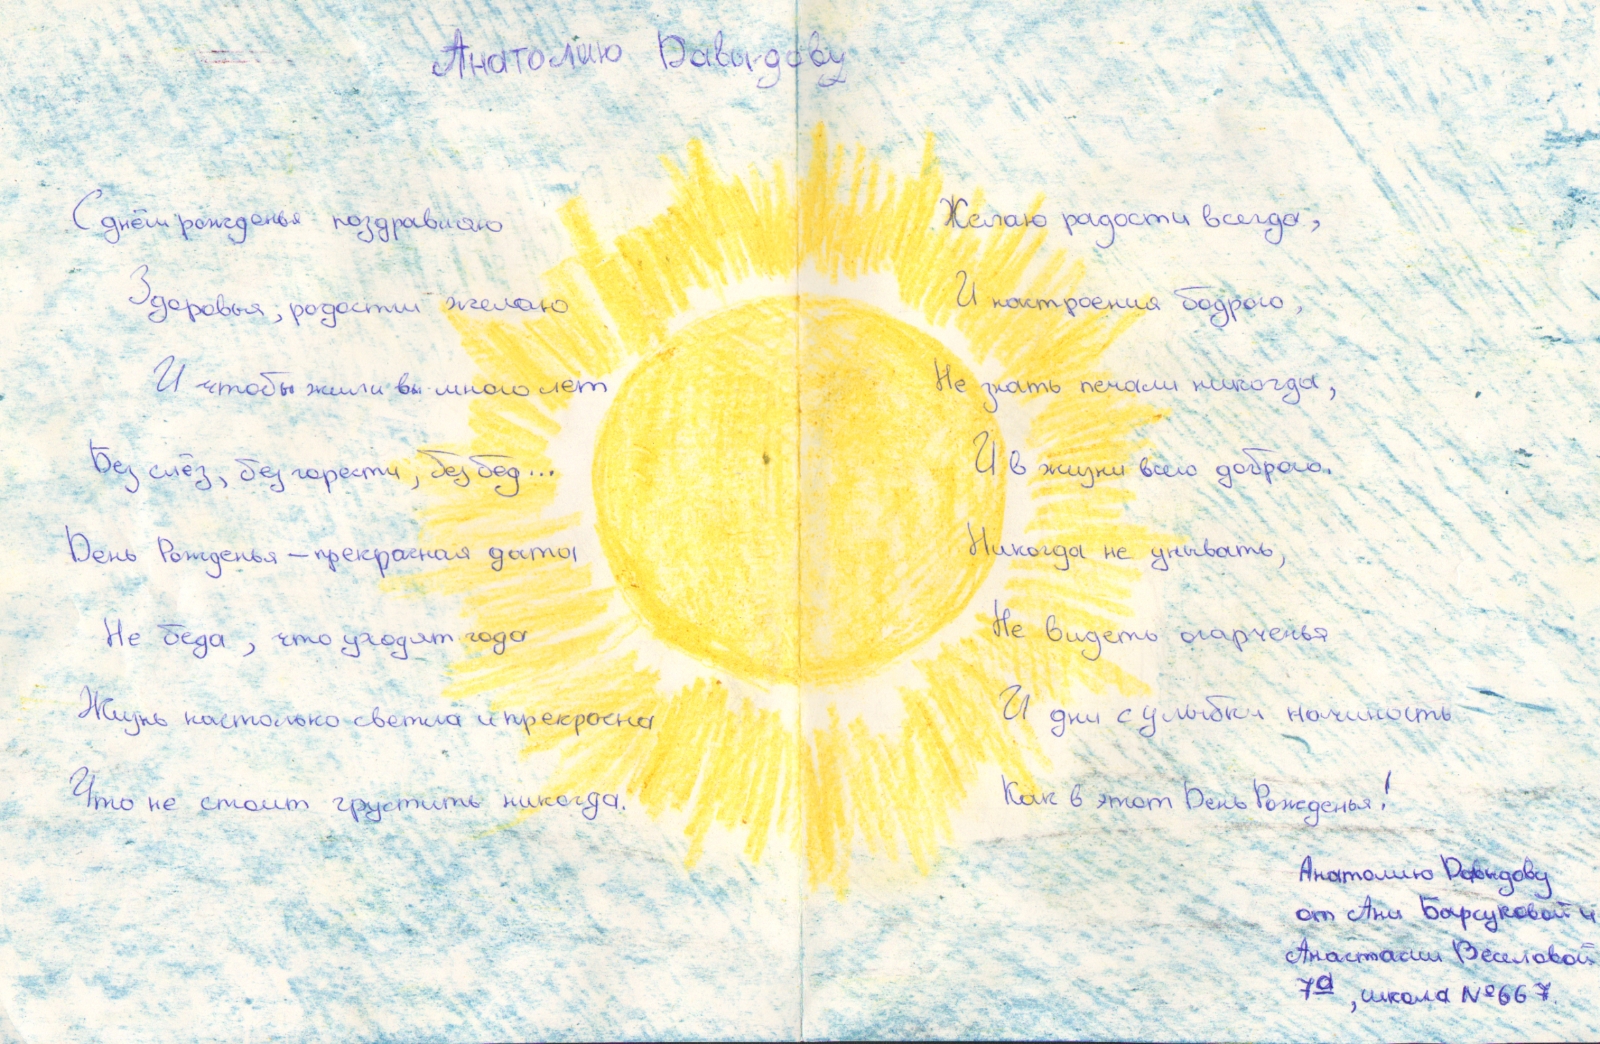 Анатолию Давыдову
С днём рожденья поздравляю
Здоровья, радости желаю
И чтобы жили вы много лет
Без слёз, без горести, без бед...
День Рожденья – прекрасная дата
Не беда, что уходят года
Жизнь настолько светла и прекрасна
Что не стоит грустить никогда.
Желаю радости всегда,
И настроения бодрого,
Не знать печали никогда,
И в жизни всего доброго.
Никогда не унывать,
Не видеть огарченья
И дни с улыбки начинать
Как в этот День Рожденья!
Анатолию Давыдову
от Ани Барсуковой и
Анастасии Веселовой
7а, школа №667.